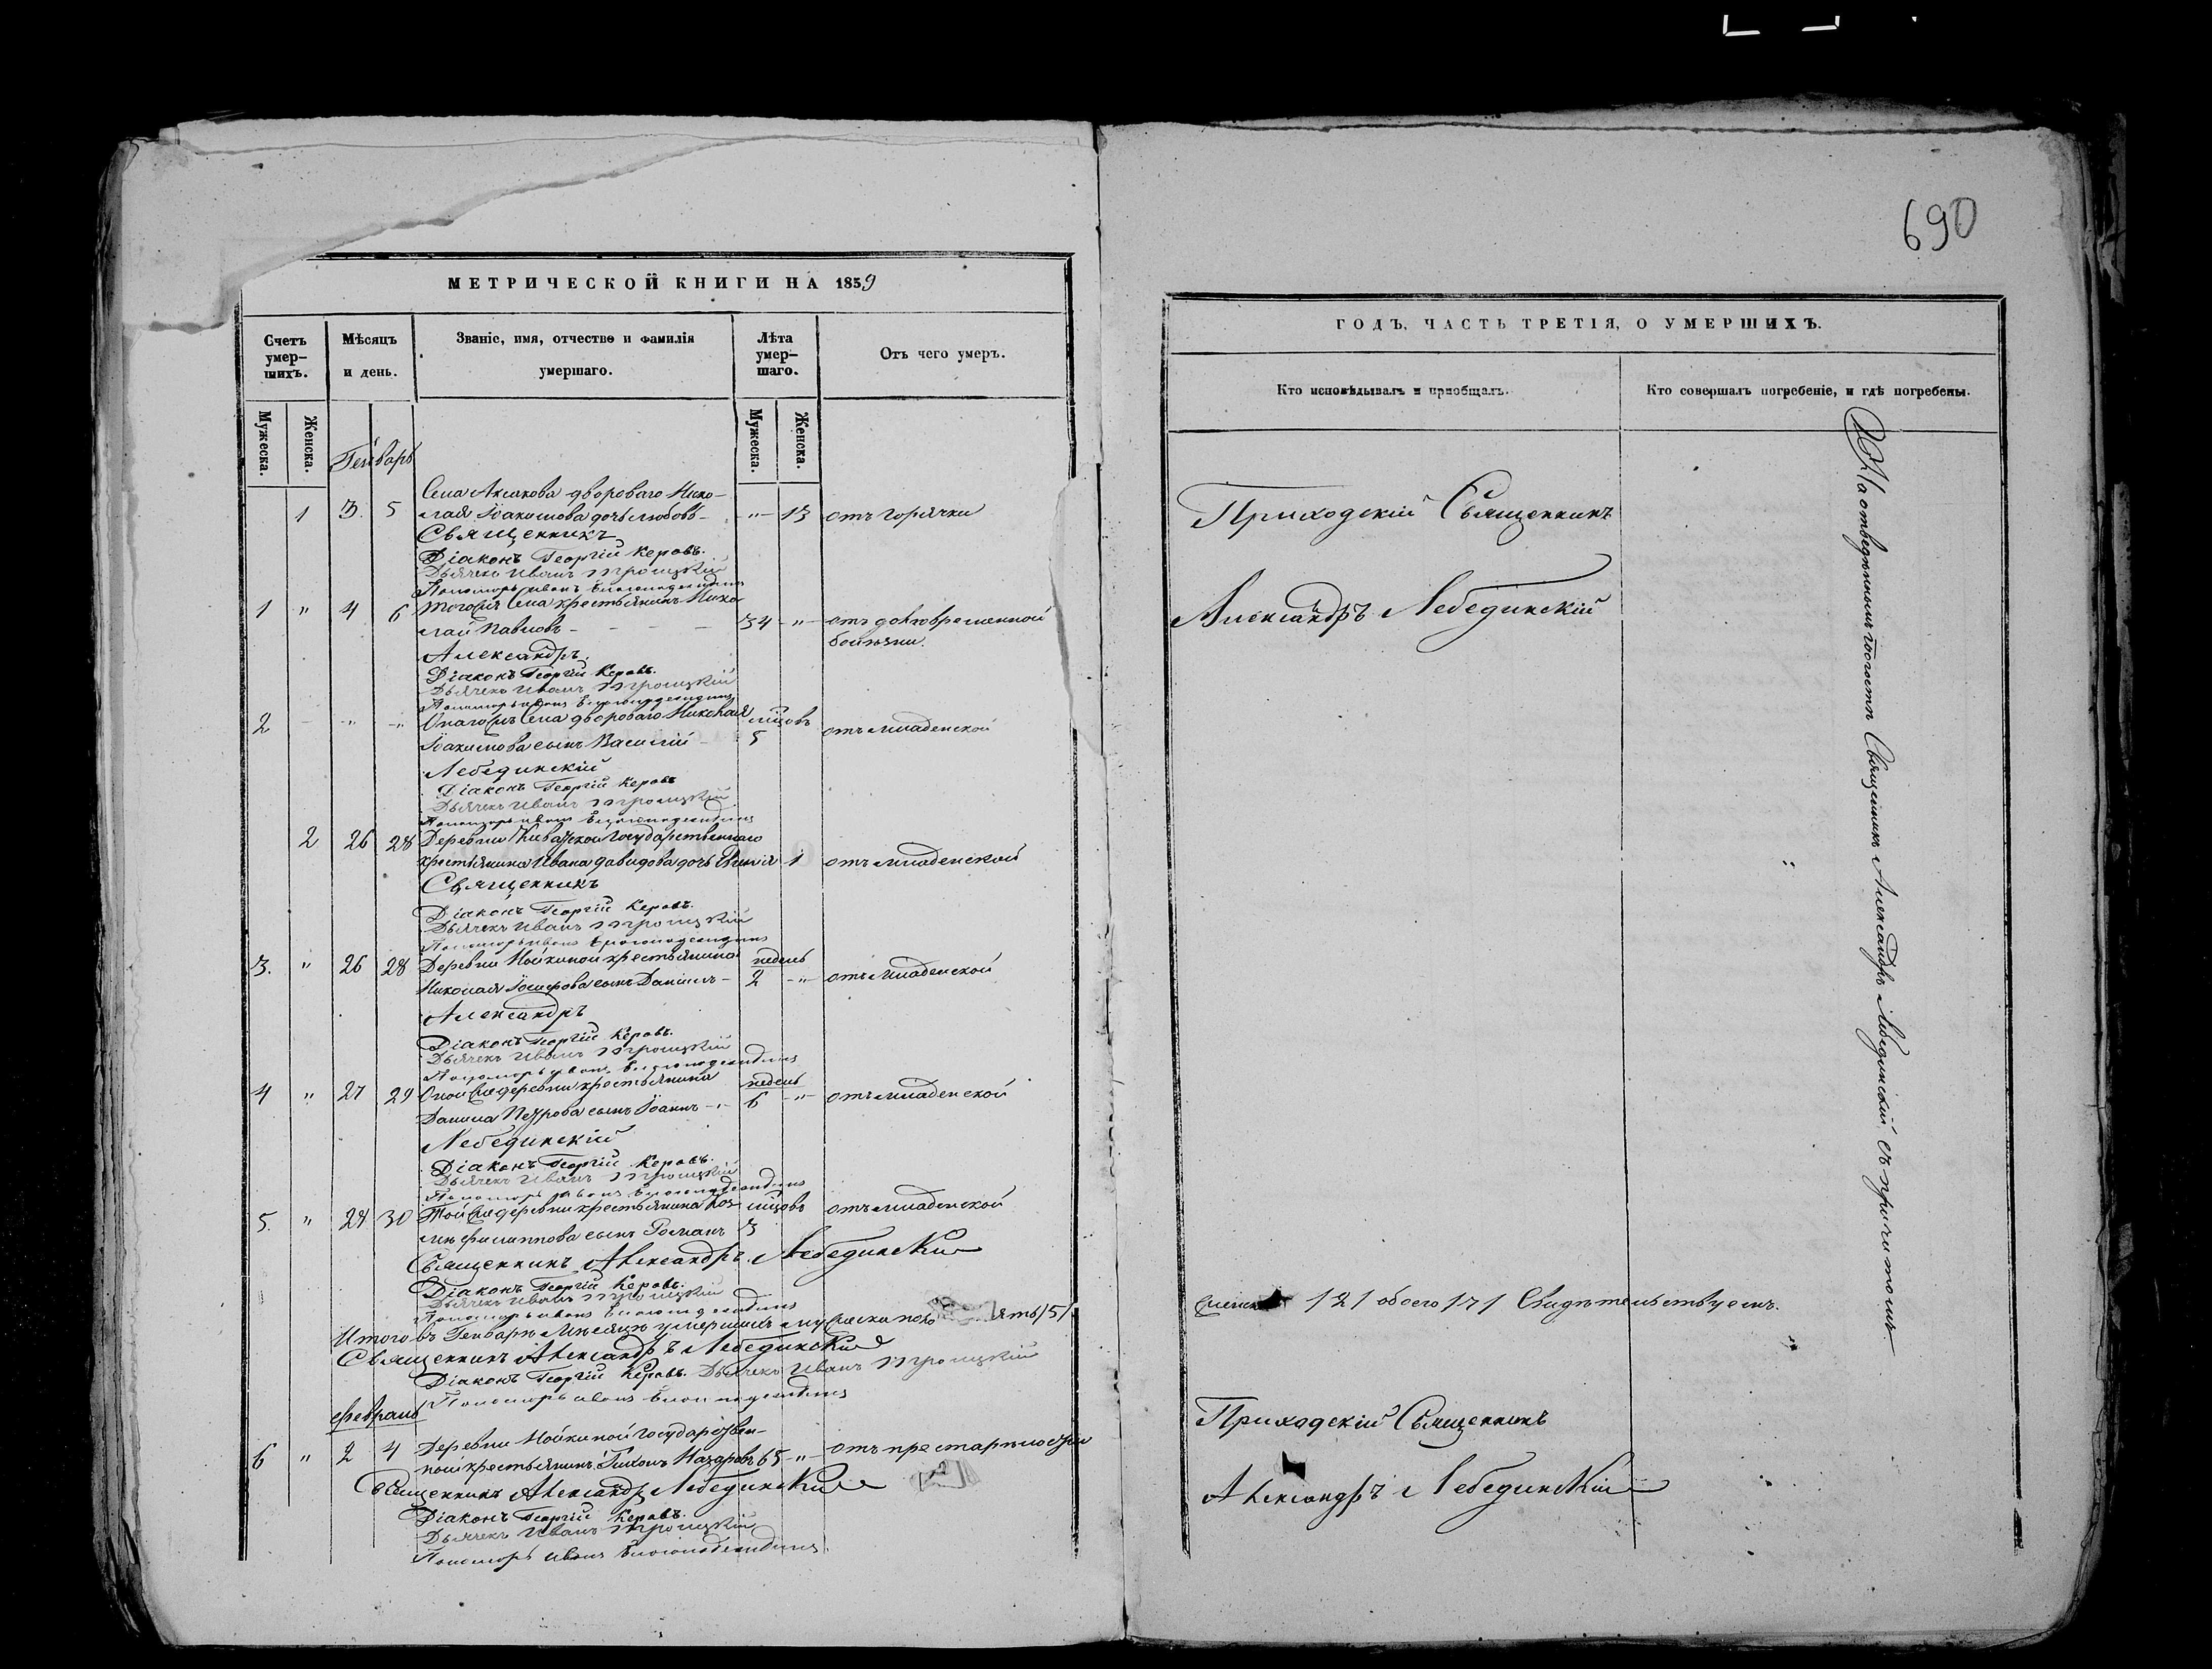 690
МЕТРИЧЕСКОЙ КНИГИ НА 1859
Счетъ умер-шихъ.
Мѣсяцъ и день.
Званіе, имя, отчество и фамилія умершаго.
Лѣта умер-шаго.
Отъ чего умеръ.
Мужеска.
Женска.
Мужеска.
Женска.
Генварь
Села Аксакова двороваго Нико-
1 3 5 лая Іоакимова дочь Любовь - " - 13 отъ горячки
Священникъ
Діаконъ Георгій Керовъ.
Дьячекъ Иванъ Троицкій
Пономарь Иванъ
1 " 4 6 Тогожъ села крестьянинъ Нико-
лай Павловъ - 34 - " - отъ долговременной
болѣзни.
Александръ
Діаконъ Георгій Керовъ.
Дьячекъ Иванъ Троицкій
Пономарь Иванъ
2 - " - " Онагожъ села двороваго Николая мѣсцовъ
Іоакимова сынъ Василій 5 отъ младенской
Лебединскій
Діаконъ Георгій Керовъ
Дьячекъ Иванъ Троицкій
Пономарь Иванъ
2 26 28 Деревни Кивацкой государственнаго
крестьянина Ивана Давидова дочь 1 отъ младенской
Священникъ
Діаконъ Георгій Керовъ.
Дьячекъ Иванъ Троицкій
Пономарь Иванъ
3. " 26 28 Деревни Мойкиной крестьянина недель
Николая Іосифова сынъ Даніилъ - 2 - " - отъ младенской
Александръ
Діаконъ Георгій Керовъ.
Дьячекъ Иванъ Троицкій
Пономарь Иванъ
4 " 27 29 Оной же деревни крестьянина недель
Данила Петрова сынъ Іоаннъ - " - 6 - " - отъ младенской
Лебединскій
Діаконъ Георгій Керовъ.
Дьячекъ Иванъ Троицкій
Пономарь Иванъ
5. " 29 30 Той же деревни крестьянина Коз- мѣсцовъ отъ младенской
мы Филиппова сынъ Романъ 3
Священникъ Александръ Лебединскій
Діаконъ Георгій Керовъ.
Дьячекъ Иванъ Троицкій
Пономарь Иванъ
Итого въ Генварѣ мѣсяцѣ умершихъ мужеска пола ять /5/
Священникъ Александръ Лебединскій
Діаконъ Георгій Керовъ. Дьячекъ Иванъ Троицкій
Пономарь Иванъ
Февраль
Деревни Мойкиной государствен-
6 " 2 4 ной крестьянинъ Тихонъ Назаровъ 65 - " - отъ престарѣлости
Священникъ Александръ Лебединскій
Діаконъ Георгій Керовъ.
Дьячекъ Иванъ Троицкій
Пономарь Иванъ
ГОДЪ, ЧАСТЬ ТРЕТІЯ, О УМЕРШИХЪ.
Кто исповѣдывалъ и пріобщалъ.
Кто совершалъ погребеніе, и гдѣ погребены.
Приходскій Священникъ
Александръ Лебединскій
На отведенномъ погостѣ Священникъ Александръ Лебединскій съ причтомъ
женска /2/ обоего /7/ Свидѣтельствуемъ.
Приходскій Священникъ
Александръ Лебединскій